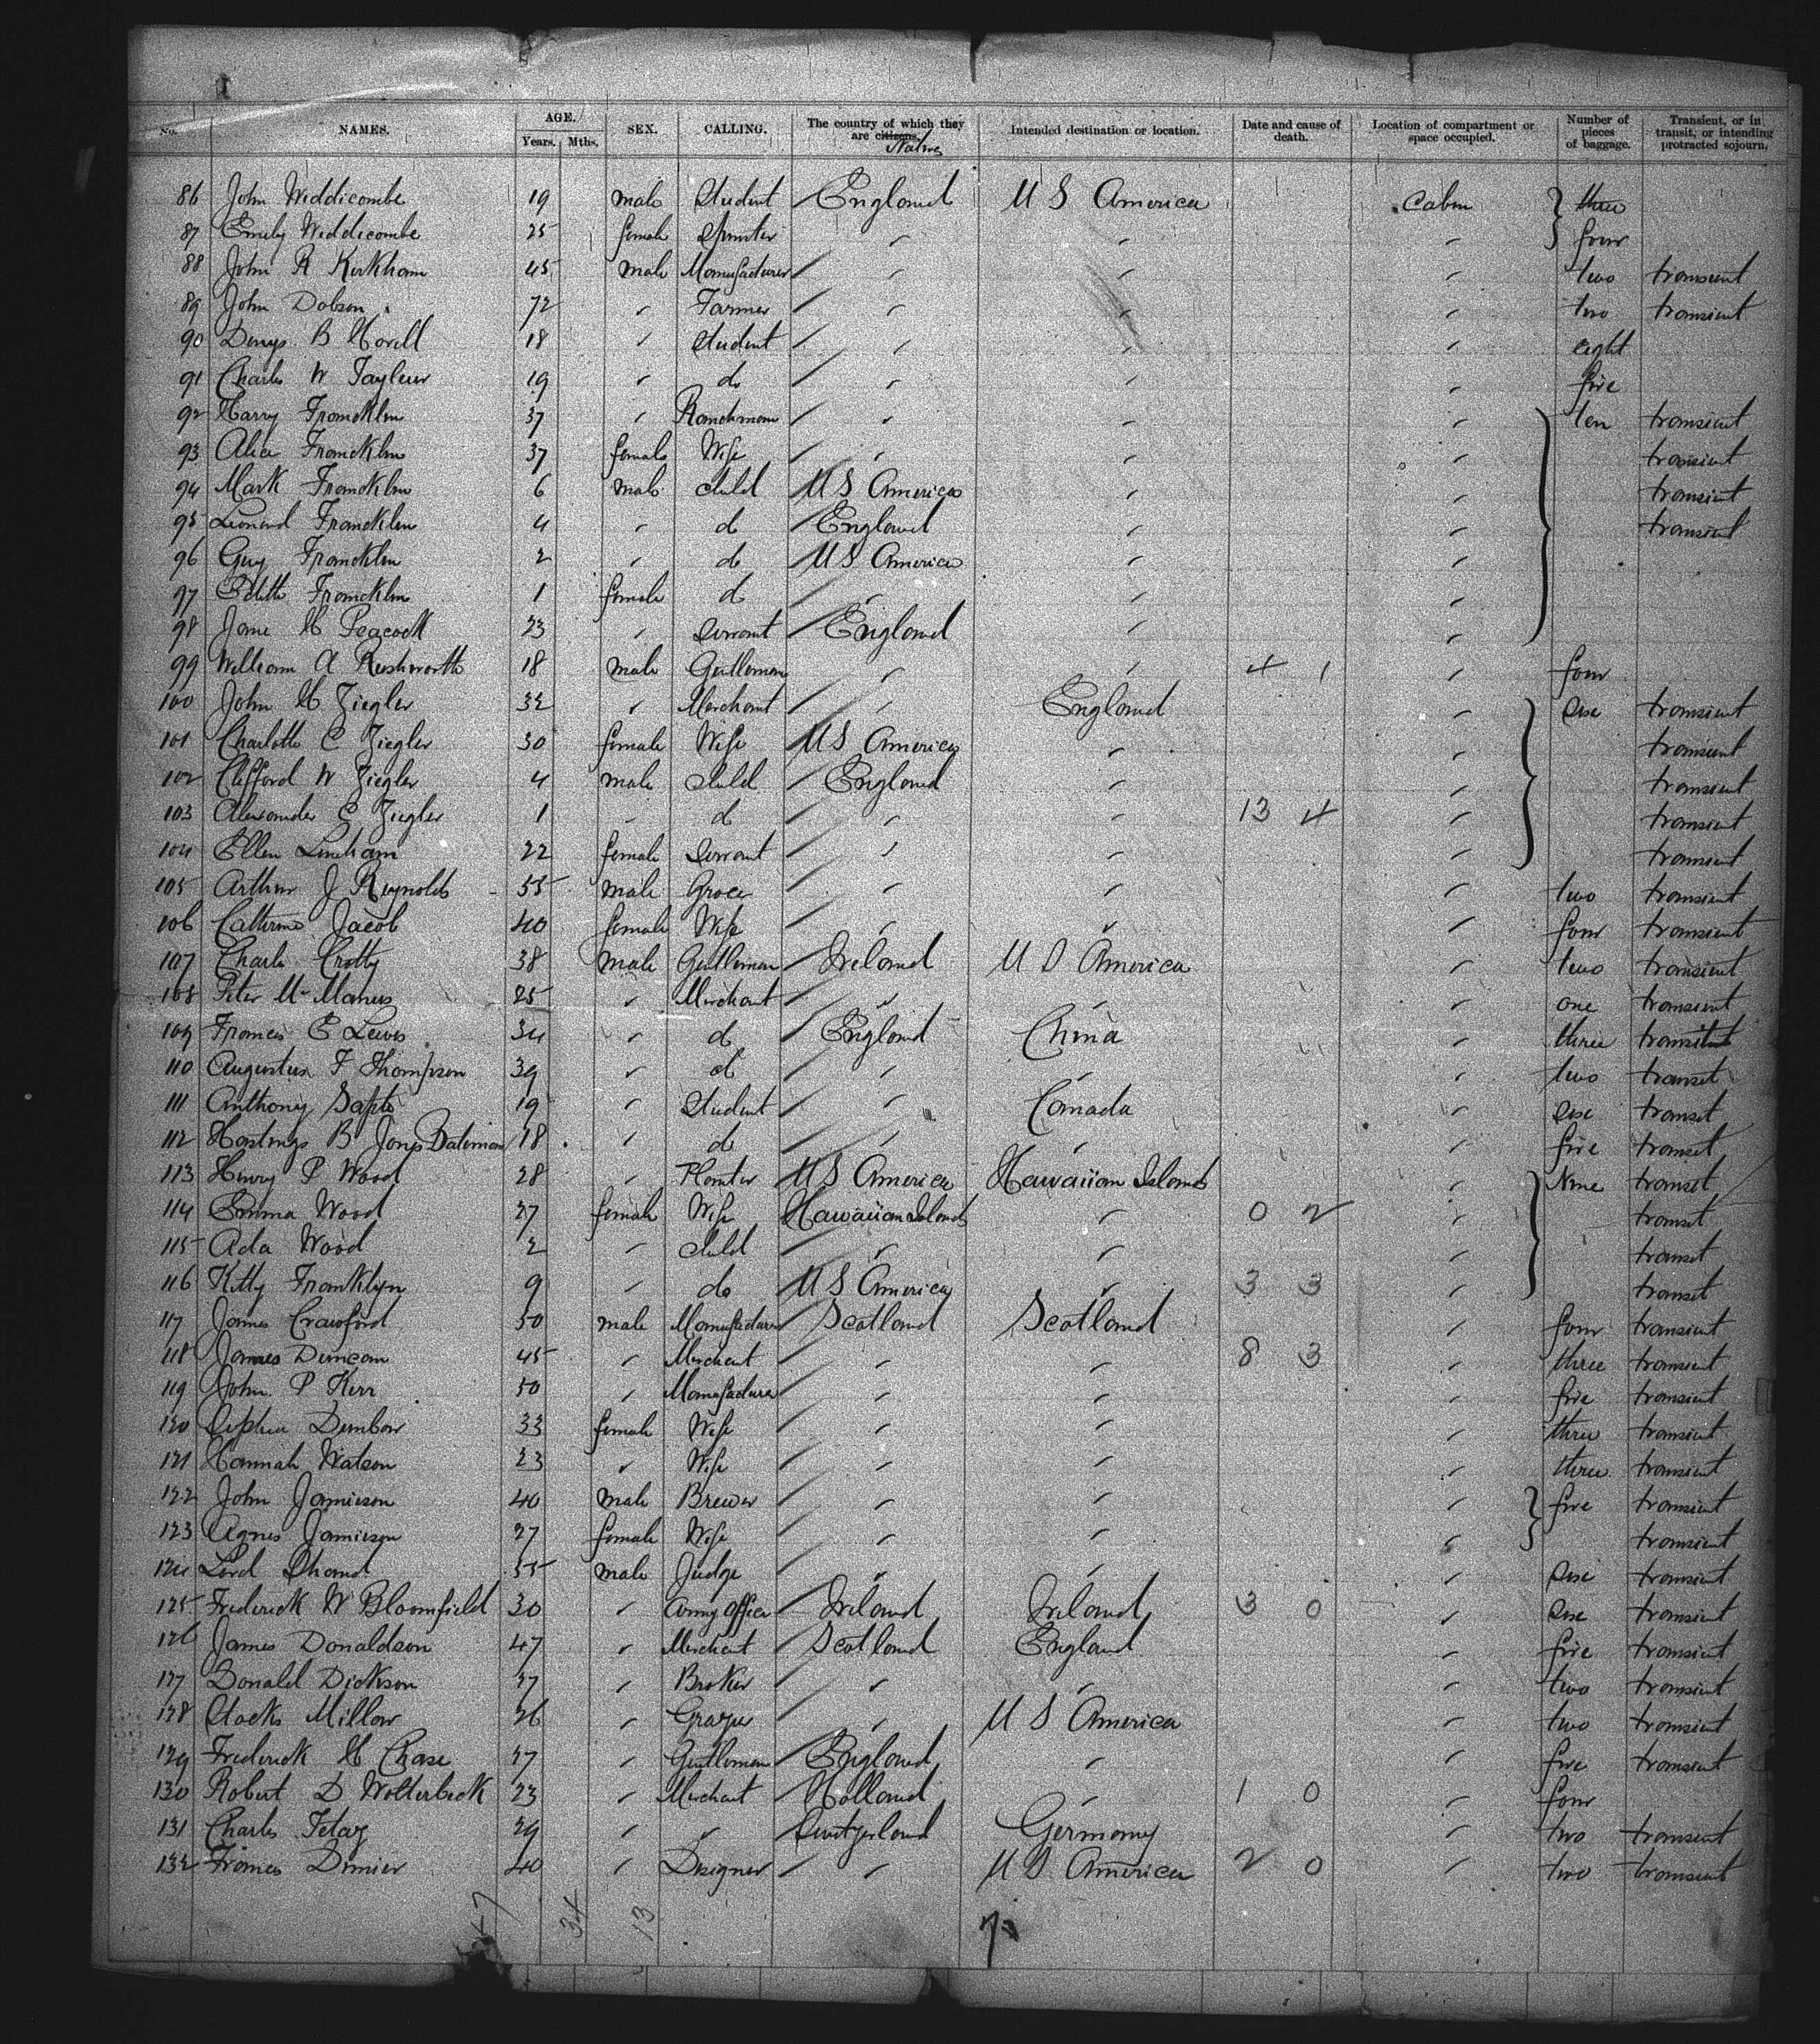 No. NAMES. AGE. Years. Mths. SEX. CALLING. The country of which they are citizens. Native Intended destination or location. Date and cause of death. Location of compartment or space occupied. Number of pieces of baggage. Transient, or in transit, or intending protracted sojourn.
86 John Widdicombe 19 male Student England U S America Cabin three
87 Emily Widdicombe 25 female Spinster " " " four
88 John R Kirkham 45 male Manufacturer " " " two transient
89 John Dobson 72 " Farmer " " " two transient
90 Denys B Hovell 18 " Student " " " eight
91 Charles W Tayleur 19 " do " " " five
92 Harry Francklin 37 " Ranchman " " " ten transient
93 Alice Francklin 37 female Wife " " " transient
94 Mark Francklin 6 male child U S America " " transient
95 Leonard Francklin 4 " do England " " transient
96 Guy Francklin 2 " do U S America " "
97 Edith Francklin 1 female do " " "
98 Jane H Peacock 23 " Servant England " "
99 William A Rushworth 18 male Gentleman " " 4 1 " four
100 John H Ziegler 32 " Merchant " England " six transient
101 Charlotte C Ziegler 30 female Wife U S America " " transient
102 Clifford W Ziegler 4 male child England " " transient
103 Alexander E Ziegler 1 " do " " 13 4 " transient
104 Ellen Lineham 22 female Servant " " " transient
105 Arthur J Reynolds 55 male Grocer " " " two transient
106 Catherine Jacob 40 female Wife " " " four transient
107 Charles Crotty 38 male Gentleman Ireland U S America " two transient
108 Peter McManus 25 " Merchant " " " one transient
109 Francis E Lewis 34 " do England China " three transit
110 Augustus F Thompson 39 " do " " " two transit
111 Anthony Sapte 19 " Student " Canada " six transit
112 Hastings B Jones 18 " do " " " five transit
113 Henry P Wood 28 " Planter U S America Hawaiian Islands " Nine transit
114 Emma Wood 27 female Wife Hawaiian Islands " 0 2 " transit
115 Ada Wood 2 " child " " " transit
116 Kitty Franklyn 9 " do U S America " 3 3 " transit
117 James Crawford 50 male Manufacturer Scotland Scotland " four transient
118 James Duncan 45 " Merchant " " 8 3 " three transient
119 John P Kerr 50 " Manufacturer " " " five transient
120 Dunbar 33 female Wife " " " three transient
121 Hannah Watson 23 " Wife " " " three transient
122 John Jamieson 40 male Brewer " " " five transient
123 Agnes Jamieson 27 female Wife " " " transient
124 Lord Shand 55 male Judge " " " six transient
125 Frederick W Bloomfield 30 " Army Officer Ireland Ireland 3 0 " six transient
126 James Donaldson 47 " Merchant Scotland England " five transient
127 Donald Dickson 37 " Broker " " " two transient
128 Millar 26 " Grazier " U S America " two transient
129 Frederick H Chase 27 " Gentleman England " " five transient
130 Robert D Wolterbeek 23 " Merchant Holland " 1 0 " four
131 Charles 29 " " Switzerland Germany " two transient
132 Dimier 40 " Designer " U S America 2 0 " two transient
47 34 13